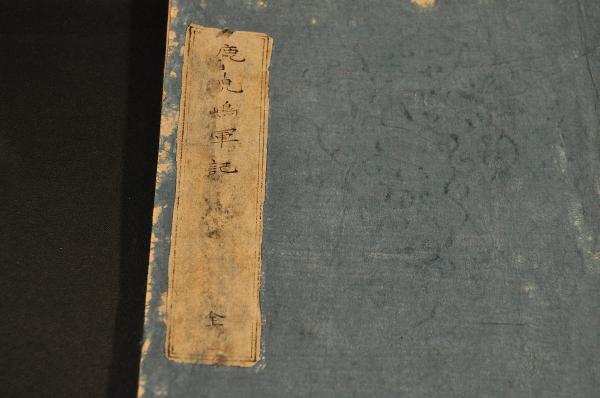 鹿児嶋軍記
全